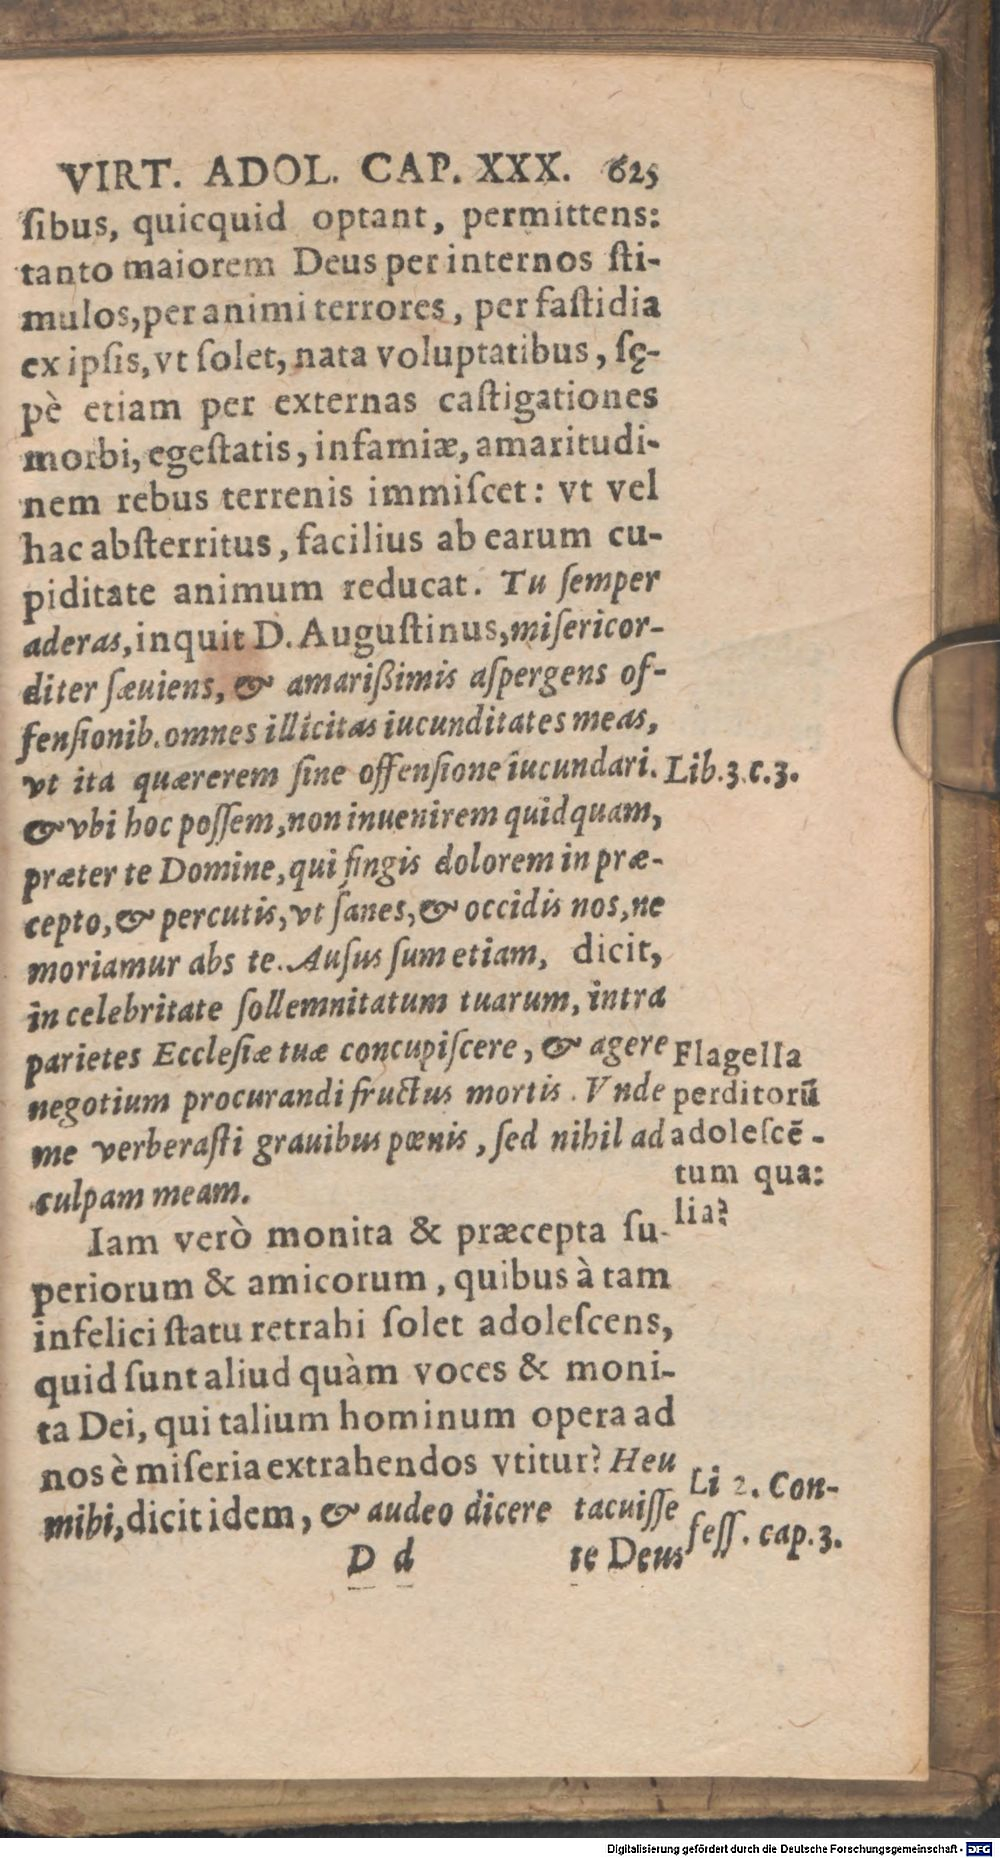 VIRT. ADOL. CAP. XXX. 625
ſibus, quicquid optant, permittens:
tanto maiorem Deus per internos ſti-
mulos, per animi terrores, per faſtidia
ex ipſis, vt ſolet, nata voluptatibus, ſę-
pè etiam per externas caſtigationes
morbi, egeſtatis, infamiæ, amaritudi-
nem rebus terrenis immiſcet: vt vel
hac abſterritus, facilius ab earum cu-
piditate animum reducat. Tu ſemper
aderas, inquit D. Auguſtinus, miſericor-
diter ſæuiens, & amarißimis aſpergens of-
fenſionib. omnes illicitas iucunditates meas,
vt ita quærerem ſine offenſione iucundari.
Lib. 3. c. 3.
& vbi hoc poſſem, non inuenirem quidquam,
præter te Domine, qui fingis dolorem in præ-
cepto, & percutis, vt ſanes, & occidis nos, ne
moriamur abs te. Auſus ſum etiam, dicit,
in celebritate ſollemnitatum tuarum, intra
parietes Eccleſiæ tuæ concupiſcere, & agere
negotium procurandi fructus mortis. Vnde
me verberaſti grauibus pœnis, ſed nihil ad
culpam meam.
Flagella
perditorū
adoleſcē-
tum qua:
lia?
Iam verò monita & præcepta ſu-
periorum & amicorum, quibus à tam
infelici ſtatu retrahi ſolet adoleſcens,
quid ſunt aliud quàm voces & moni-
ta Dei, qui talium hominum opera ad
nos è miſeria extrahendos vtitur? Heu
mihi, dicit idem, & audeo dicere tacuiſſe
Li 2. Con-
feſſ. cap. 3.
D d te Deus
Digitalisierung gefördert durch die Deutsche Forschungsgemeinschaft - DFG